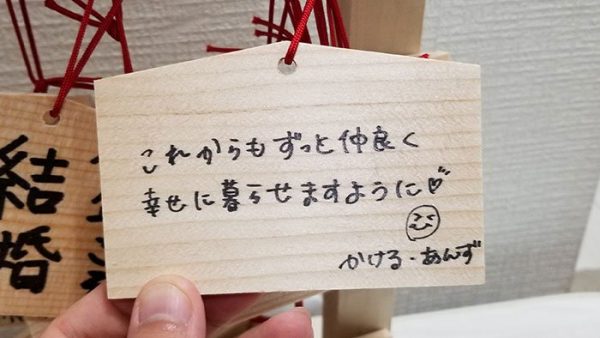 これからもずっと仲良く
幸せに暮らせますように♡
かける・あんず
結婚